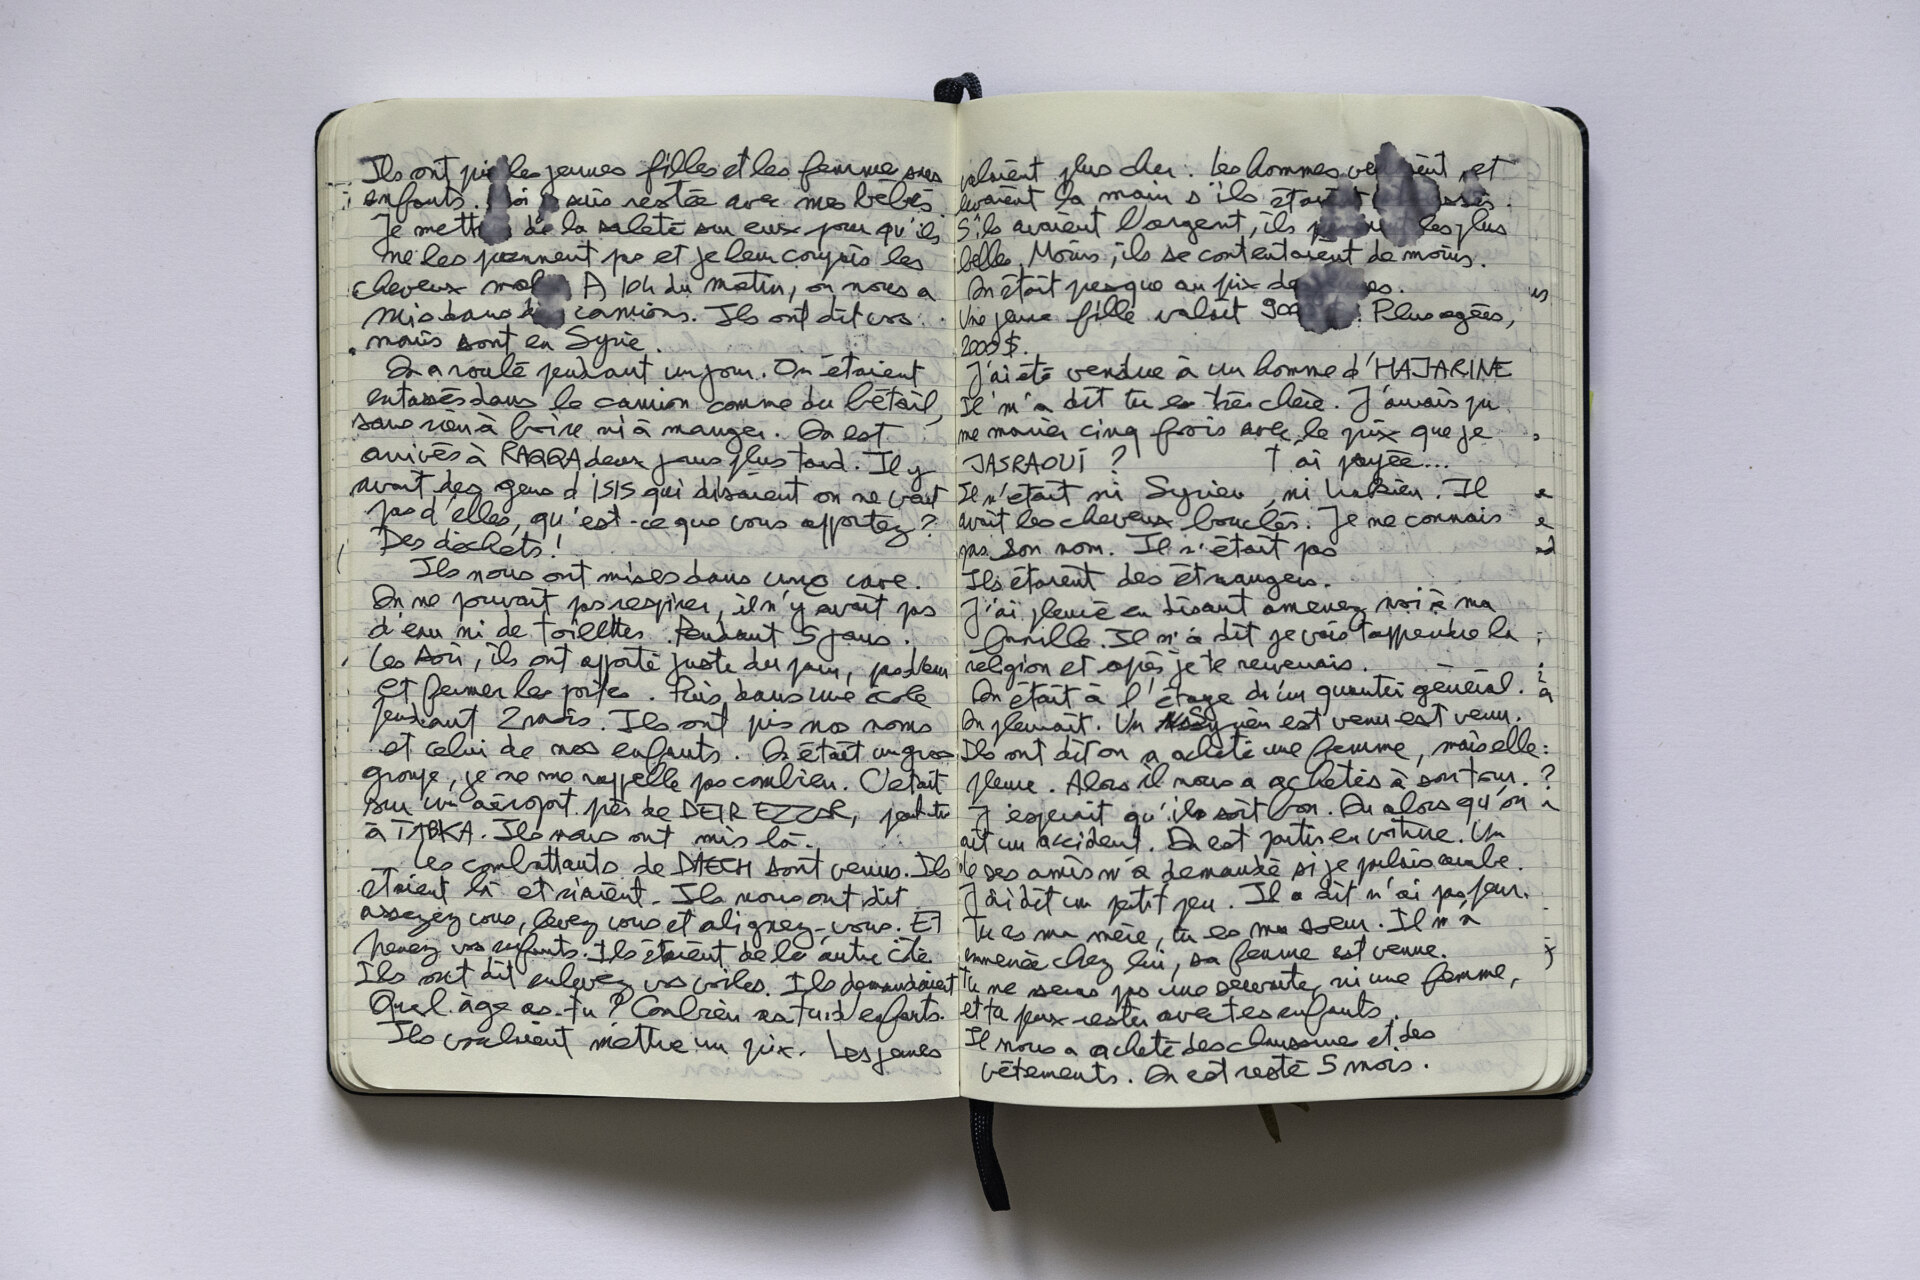 Ils ont pris les jeunes filles et les femme sans
enfants. Moi je suis restée avec mes bébés.
Je mettais de la saleté sur eux pour qu'ils
ne les prennent pas et je leur coupais les
cheveux A 10h du matin, on nous a
mis dans des camions. Ils ont dit vos
maris sont en Syrie.
On a roulé pendant un jour. On étaient
entassés dans le camion comme du bétail,
sans rien à boire ni à manger. On est
arrivés à RAQQA deux jours plus tard. Il y
avait des gens d'ISIS qui disaient on ne veut
pas d'elles, qu'est-ce que vous apportez?
Des déchets!
Ils nous ont mises dans une cave.
On ne pouvait pas respirer, il n'y avait pas
d'eau ni de toilettes. Pendant 5 jours.
Les soir, ils ont apporté juste du pain, pas d'eau
et fermer les portes. Puis dans une école
pendant 2 mois. Ils ont pris nos noms
et celui de nos enfants. On était un gros
groupe, je ne me rappelle pas combien. C'etait
sur un aéroport près de DEIR EZZOR, peut-être
à TABKA. Ils nous ont mis là.
Les combattants de DAECH sont venus. Ils
etaient là et riaient. Ils nous ont dit
asseyez vous, levez vous et alignez-vous. Et
prenez vos enfants. Ils étaient de l'autre côté
Ils ont dit enlevez vos voiles. Ils demandaient
Quel âge as-tu? Combien as tu d'enfants.
Ils voulaient mettre un prix. Les jeunes
valaient plus cher. Les hommes venaient et
levaient la main s'ils étaient
S'ils avaient l'argent, ils prenaient les plus
belle. Moins, ils se contentaient de moins.
On était presque au prix des
Une jeune fille valait Plus agées,
2000$.
J'ai été vendue à un homme d'HAJARINE
Il m'a dit tu es très chère. J'aurais pu
me marier cinq fois avec le prix que je
JASRAOUI ? t'ai payée...
Il n'était ni Syrien, ni Irakien. Il
avait les cheveux bouclés. Je ne connais
pas son nom. Il n'était pas
Ils étaient des étrangers.
J'ai pleuré en disant amenez moi à ma
famille. Il m'a dit je vais t'apprendre la
religion et après je te revenais.
On était à l'étage d'un quartier général.
On pleurait. Un Syrien est venu est venu.
Ils ont dit on a acheté une femme, mais elle
pleure. Alors il nous a achetés à son tour.
J'esperait qu'ils soit bon. Ou alors qu'on
ait un accident. On est partis en voiture. Un
de ses amis m'a demandé si je parlais arabe.
J'ai dit un petit peu. Il a dit n'ai pas peur.
Tu es ma mère, tu es ma soeur. Il m'a
emmenée chez lui, sa femme est venue.
Tu ne seras pas une servante, ni une femme,
et tu peux rester avec tes enfants.
Il nous a acheté des chaussures et des
vêtements. On est resté 5 mois.